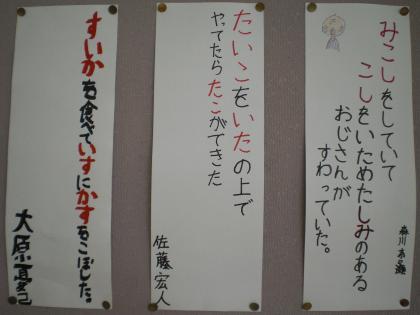 みこしをしていて
こしをいためたしみのある
おじさんが
すわっていた。
たいこをいたの上で
やってたらたこができた
佐藤宏人
すいかを食べていすにかすをこぼした。